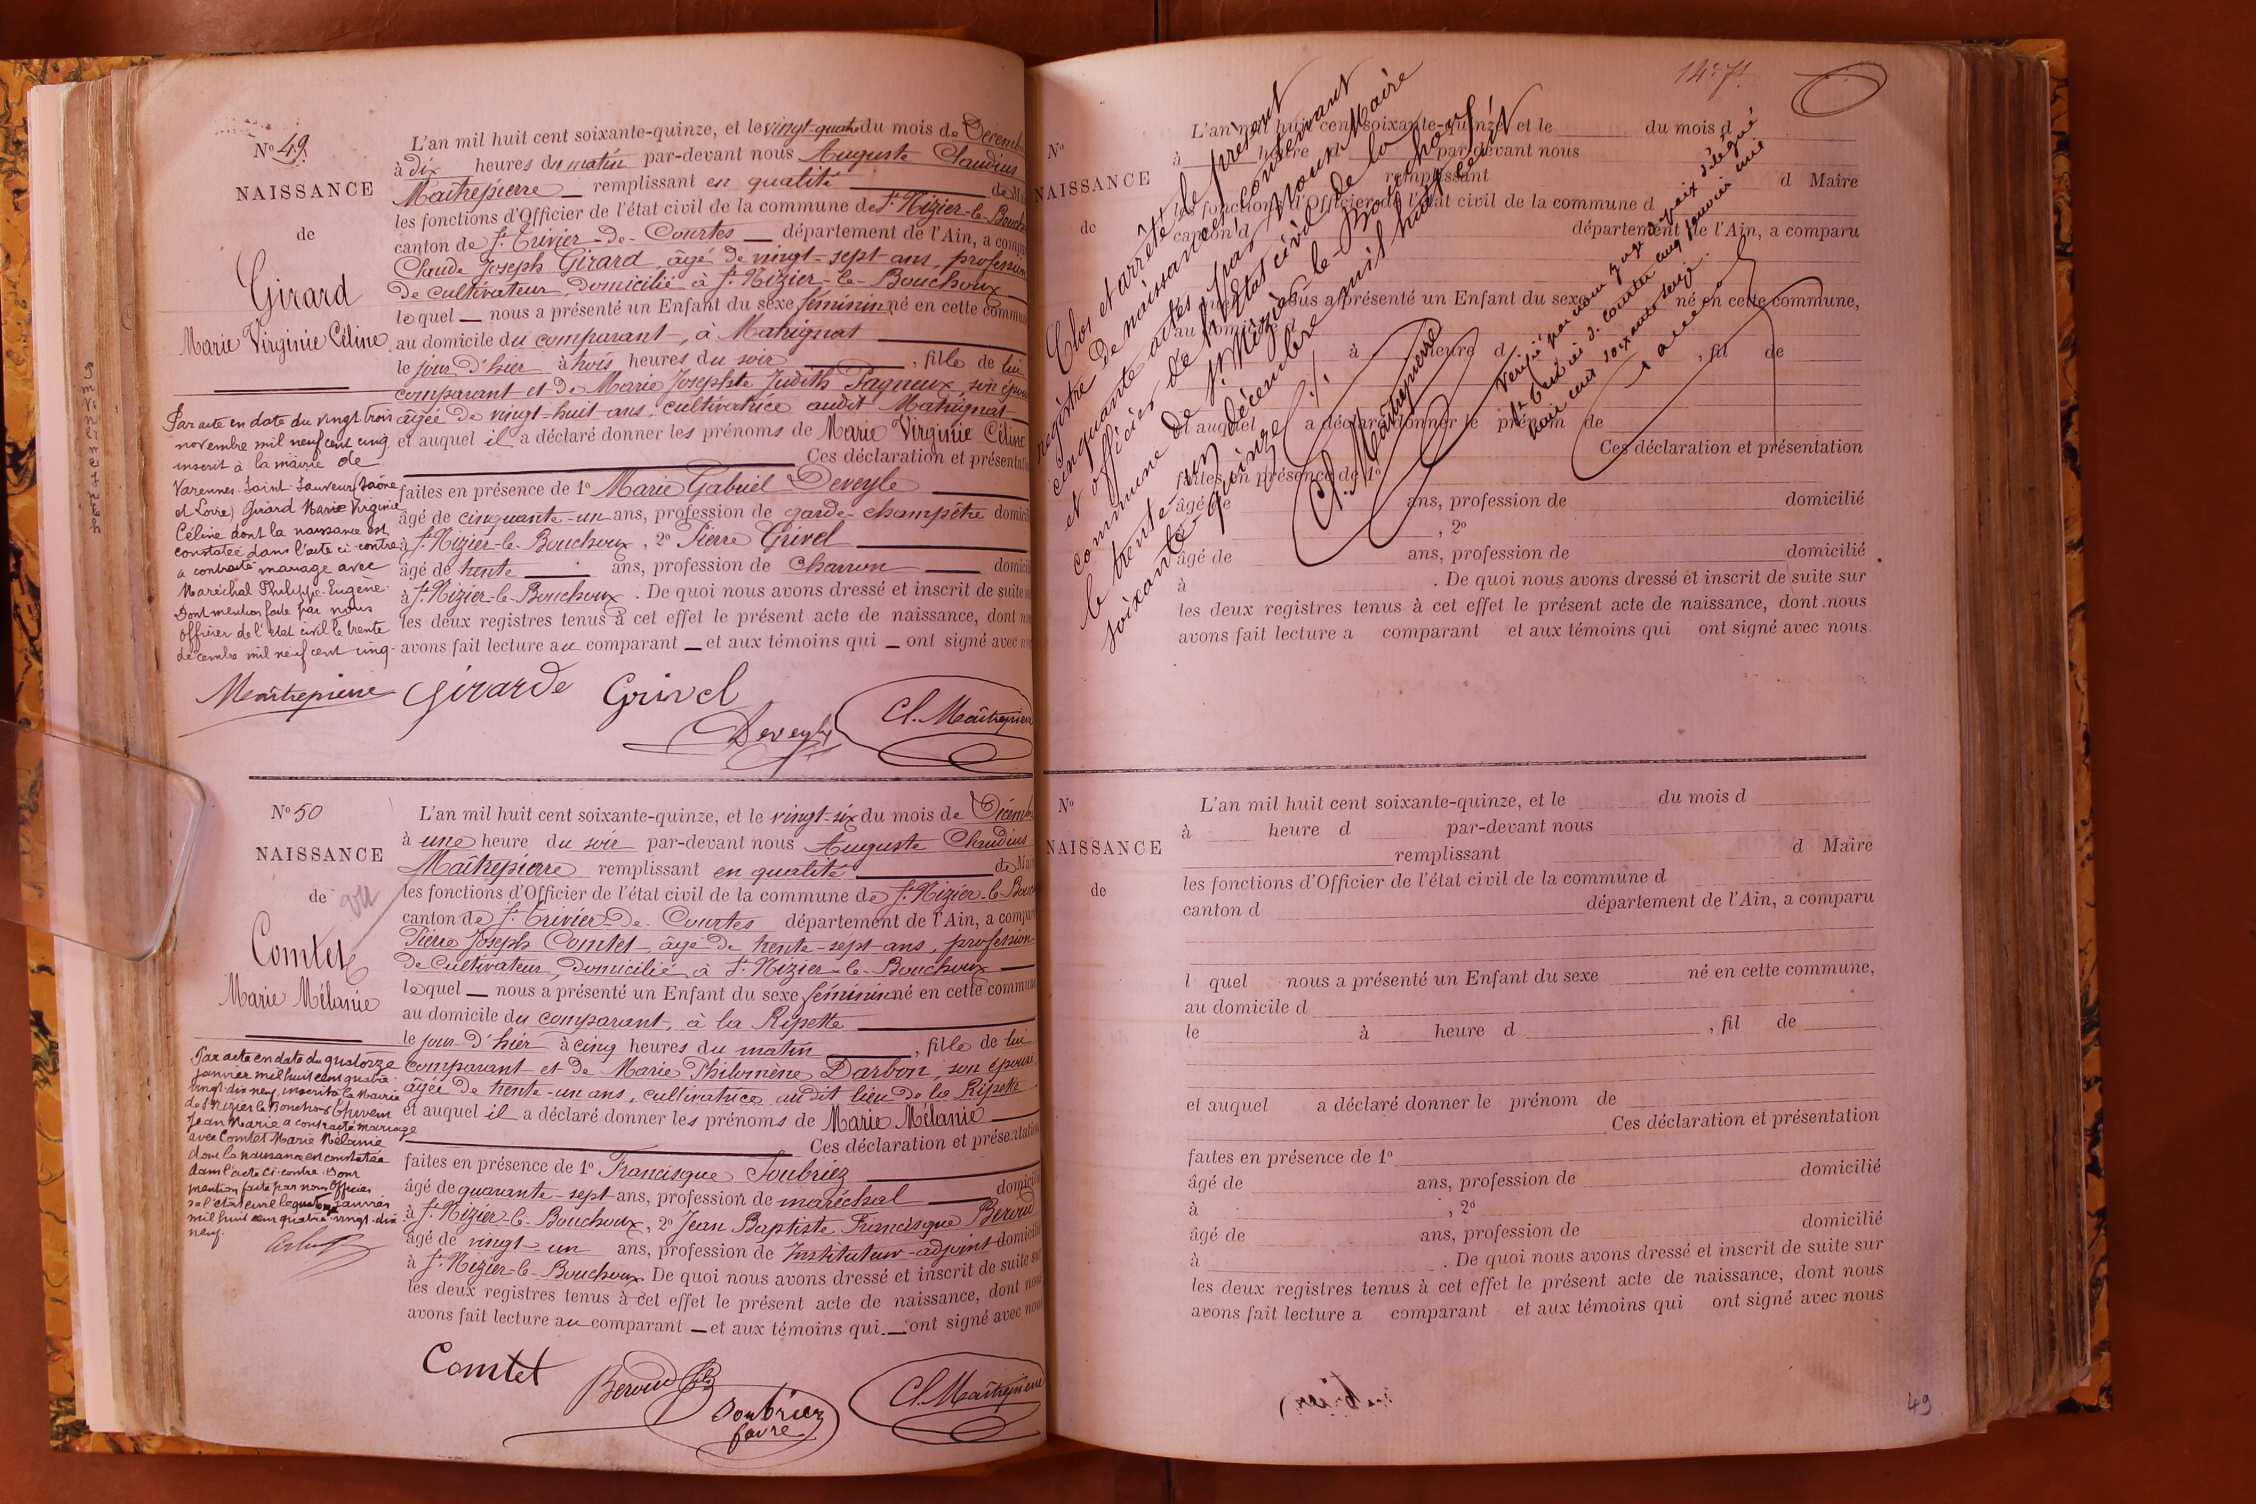 No 49.
NAISSANCE
de
Girard
Marie Virginie Céline
Par acte en date du vingt trois
novembre mil neuf cent cinq
inscrit à la mairie de
Varennes-Saint-Sauveur (Saône
et Loire) Girard Marie Virginie
Céline dont la naissance est
constatée dans l'acte ci-contre
a contracté mariage avec
Maréchal Philippe-Eugène.
Dont mention faite par nous
officier de l'état civil le trente
décembre mil neuf cent cinq.
Maîtrepierre
L'an mil huit cent soixante-quinze, et le vingt-quatre du mois de Décemb
à dix heures du matin par-devant nous Auguste Claudius
Maîtrepierre remplissant en qualité de Mai
les fonctions d'Officier de l'état civil de la commune de St Nizier-le-Bouch
canton de St Trivier-de-Courtes département de l'Ain, a compa
Claude Joseph Girard, âgé de vingt-sept ans, profession
de cultivateur, domicilié à St Nizier-le-Bouchoux
lequel nous a présenté un Enfant du sexe féminin né en cette commun
au domicile du comparant, à
le jour d'hier à trois heures du soir , fille de lui
comparant et de Marie Josephte Judith Pagneux, son épou
âgée de vingt-huit ans, cultivatrice audit
et auquel il a déclaré donner les prénoms de Marie Virginie Céline
Ces déclaration et présentat
faites en présence de 1o Marie Gabriel Deveyle
âgé de cinquante-un ans, profession de garde-champêtre domici
à St Nizier-le-Bouchoux, 2o Pierre Grivel
âgé de trente ans, profession de charron domici
à St Nizier-le-Bouchoux. De quoi nous avons dressé et inscrit de suite su
les deux registres tenus à cet effet le présent acte de naissance, dont no
avons fait lecture au comparant et aux témoins qui ont signé avec no
Girarde Grivel
Deveyle Cl. Maîtrepierre
No 50
NAISSANCE
de
vu
Comtet
Marie Mélanie
Par acte en date du quatorze
janvier mil huit cent quatre
vingt-dix neuf, inscrit à la Mairie
de St Nizier le Bouchoux
Jean Marie a contracté mariage
avec Comtet Marie Mélanie
dont la naissance est constatée
dans l'acte ci-contre. Dont
mention faite par nous Officier
de l'état civil le quatorze janvier
mil huit cent quatre vingt-dix
neuf.
L'an mil huit cent soixante-quinze, et le vingt-six du mois de Décemb
à une heure du soir par-devant nous Auguste Claudius
Maîtrepierre remplissant en qualité de Mai
les fonctions d'Officier de l'état civil de la commune de St Nizier-le-Bouch
canton de St Trivier-de-Courtes département de l'Ain, a compar
Pierre Joseph Comtet âgé de trente-sept ans, profession
de cultivateur, domicilié à St Nizier-le-Bouchoux
lequel nous a présenté un Enfant du sexe féminin né en cette commune
au domicile du comparant, à la Ripette
le jour d'hier à cinq heures du matin , fille de lui
comparant et de Marie Philomène Darbon, son épouse
âgée de trente-un ans, cultivatrice audit lieu de la Ripette
et auquel il a déclaré donner les prénoms de Marie Mélanie
Ces déclaration et présentation
faites en présence de 1o Francisque Soubriez
âgé de quarante-sept ans, profession de maréchal domicil
à St Nizier-le-Bouchoux, 2o Jean Baptiste Francisque Beroud
âgé de vingt-un ans, profession de Instituteur-adjoint domicilié
à St Nizier-le-Bouchoux. De quoi nous avons dressé et inscrit de suite sur
les deux registres tenus à cet effet le présent acte de naissance, dont nous
avons fait lecture au comparant et aux témoins qui ont signé avec nou
Comtet
Beroud
Soubriez
favre
Cl. Maîtrepierre
No
NAISSANCE
de
L'an mil huit cent soixante-quinze, et le du mois d
à heure d par-devant nous
remplissant d Maire
les fonctions d'Officier de l'état civil de la commune d
canton d département de l'Ain, a comparu
l quel nous a présenté un Enfant du sexe né en cette commune,
au domicile d
le à heure d , fil de
et auquel a déclaré donner le prénom de
Ces déclaration et présentation
faites en présence de 1o
âgé de ans, profession de domicilié
à , 2o
âgé de ans, profession de domicilié
à . De quoi nous avons dressé et inscrit de suite sur
les deux registres tenus à cet effet le présent acte de naissance, dont nous
avons fait lecture a comparant et aux témoins qui ont signé avec nous
Clos et arrêté le présent
registre de naissances contenant
cinquante actes par Nous Maire
et officier de l'état civil de la
commune de St Nizier-le-Bouchoux
le trente-un décembre mil huit cent
soixante-quinze
Cl. Maîtrepierre
Vérifié par nous juge de paix délégué
St Trivier de Courtes cinq janvier mil
huit cent soixante seize.
No
NAISSANCE
de
L'an mil huit cent soixante-quinze, et le du mois d
à heure d par-devant nous
remplissant d Maire
les fonctions d'Officier de l'état civil de la commune d
canton d département de l'Ain, a comparu
l quel nous a présenté un Enfant du sexe né en cette commune,
au domicile d
le à heure d , fil de
et auquel a déclaré donner le prénom de
Ces déclaration et présentation
faites en présence de 1o
âgé de ans, profession de domicilié
à , 2o
âgé de ans, profession de domicilié
à . De quoi nous avons dressé et inscrit de suite sur
les deux registres tenus à cet effet le présent acte de naissance, dont nous
avons fait lecture a comparant et aux témoins qui ont signé avec nous
49